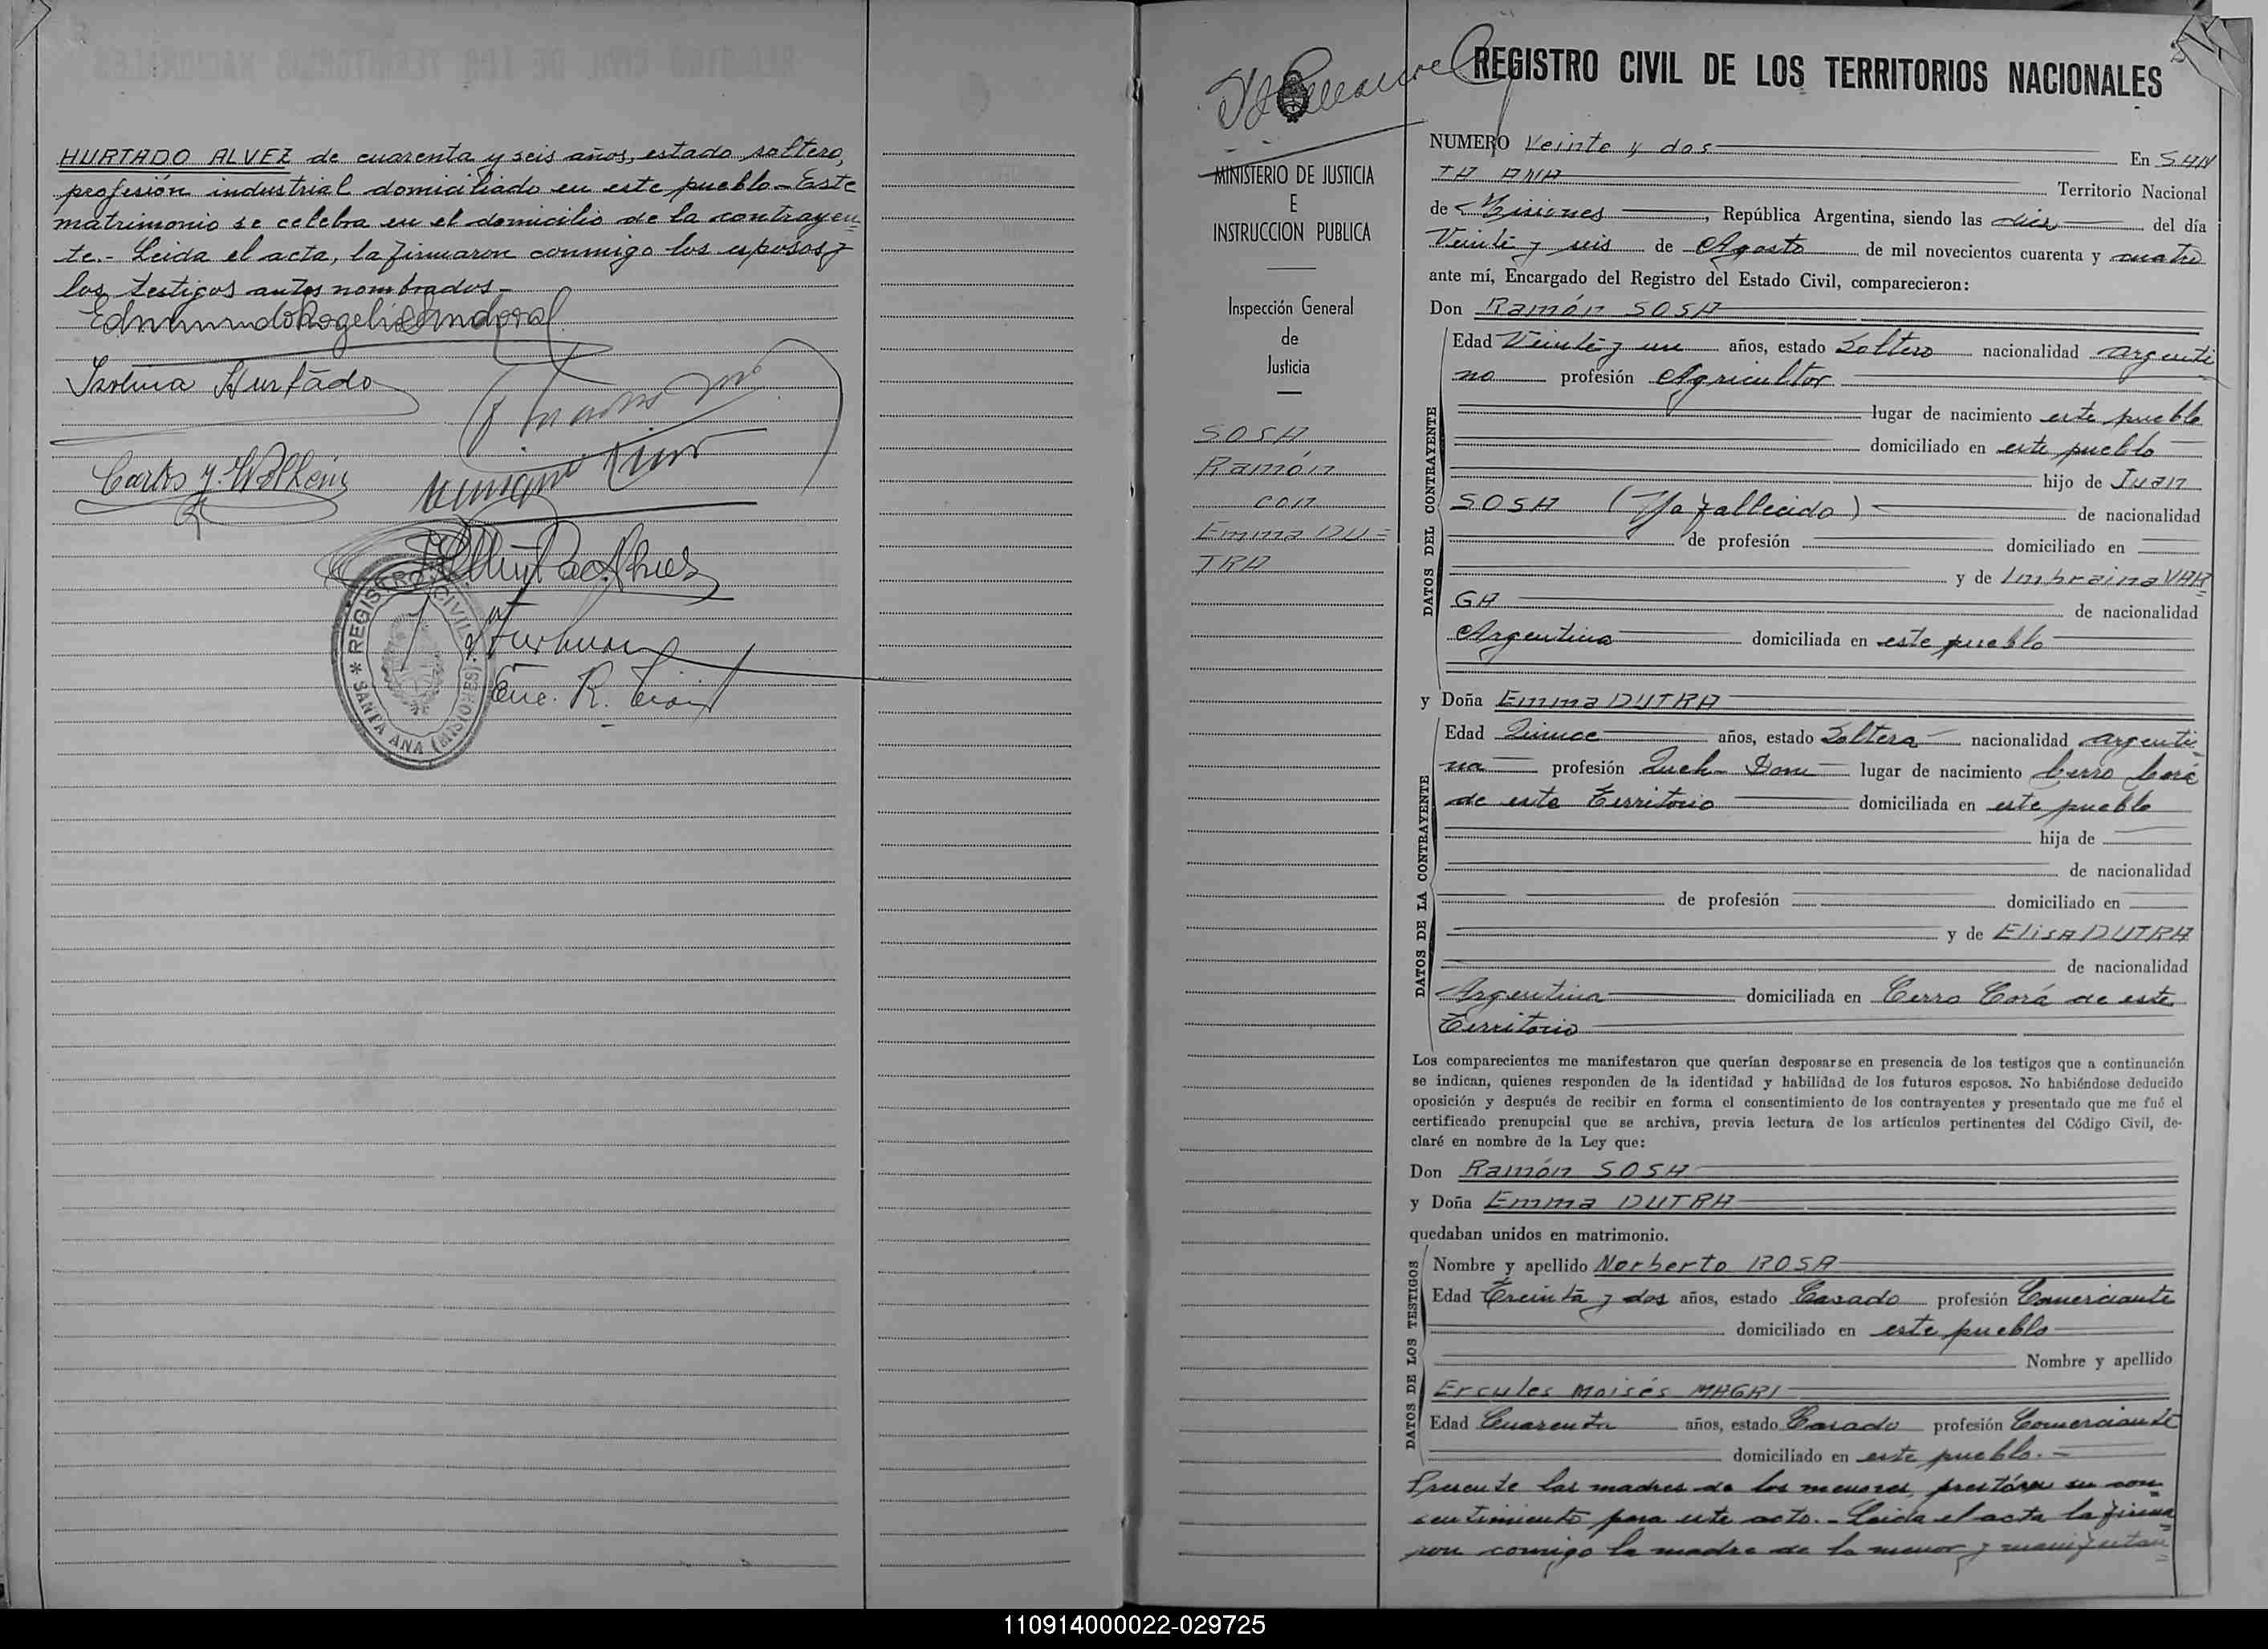 HURTADO ALVEZ de cuarenta y seis años, estado soltero,
profesión industrial domiciliado en este pueblo - Este
matrimonio se celebra en el domicilio de la contrayen=
te.- Leida el acta, la firmaron conmigo los esposos y
los testigos antes nombrados -
Edmundo Rogelio Sandoval
Isolina Hurtado
REGISTRO CIVIL
* SANTA ANA (MISIONES) *
REGISTRO CIVIL DE LOS TERRITORIOS NACIONALES
MINISTERIO DE JUSTICIA
E
INSTRUCCION PUBLICA
Inspección General
de
Justicia
SOSA
Ramón
con
Emma DU=
TRA
NUMERO Veinte y dos En SAN
TA ANA Territorio Nacional
de Misiones, República Argentina, siendo las diez del día
Veinte y seis de Agosto de mil novecientos cuarenta y cuatro
ante mí, Encargado del Registro del Estado Civil, comparecieron:
Don Ramón SOSA
DATOS DEL CONTRAYENTE
Edad Veinte y un años, estado Soltero nacionalidad argenti
no profesión Agricultor
lugar de nacimiento este pueblo
domiciliado en este pueblo
hijo de Juan
SOSA (Ya fallecido) de nacionalidad
de profesión domiciliado en
y de VAR=
GA de nacionalidad
Argentina domiciliada en este pueblo
y Doña Emma DUTRA
DATOS DE LA CONTRAYENTE
Edad Quince años, estado Soltera nacionalidad argenti=
na profesión Queh- Dom lugar de nacimiento Cerro Corá
de este Territorio domiciliada en este pueblo
hija de
de nacionalidad
de profesión domiciliado en
y de Elisa DUTRA
de nacionalidad
Argentina domiciliada en Cerro Corá de este
Territorio
Los comparecientes me manifestaron que querían desposarse en presencia de los testigos que a continuación
se indican, quienes responden de la identidad y habilidad de los futuros esposos. No habiéndose deducido
oposición y después de recibir en forma el consentimiento de los contrayentes y presentado que me fué el
certificado prenupcial que se archiva, previa lectura de los artículos pertinentes del Código Civil, de-
claré en nombre de la Ley que:
Don Ramón SOSA
y Doña Emma DUTRA
quedaban unidos en matrimonio.
DATOS DE LOS TESTIGOS
Nombre y apellido Norberto ROSA
Edad Treinta y dos años, estado Casado profesión Comerciante
domiciliado en este pueblo
Nombre y apellido
Ercules Moisés MAGRI
Edad Cuarenta años, estado Casado profesión Comerciante
domiciliado en este pueblo.-
Presente las madres de los menores, prestáron su con=
sentimiento para este acto.- Leida el acta la firma=
ron conmigo la madre de la menor y manifestan=
110914000022-029725